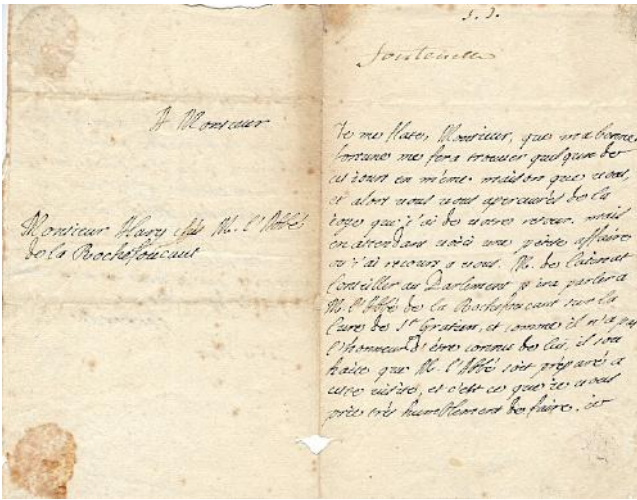 A Monsieur
Monsieur Hary chés M. l'Abbé
de la Rochefoucaut
Fontenelle
Je me flate, Monsieur, que ma bonne
fortune me fera trouver quelqu'un de
ces jours en même maison que vous,
et alors vous vous apercevrés de la
joye que j'ai de votre retour. mais
en attendant voici une petite affaire
ou j'ai recours a vous. M. de Catinat
Conseiller au Parlement ira parler a
M. l'Abbé de la Rochefoucaut sur la
Cure de St Gratien, et comme il n'a pas
l'honneur d'être connu de lui, il sou
haite que M. l'Abbé soit préparé a
cette visite, et c'est ce que je vous
prie très humblement de faire, ce